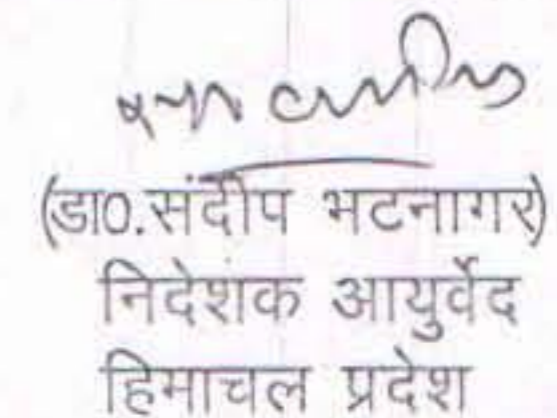 (डा0.संदीप भटनागर)
निदेशक आयुर्वेद
हिमाचल प्रदेश